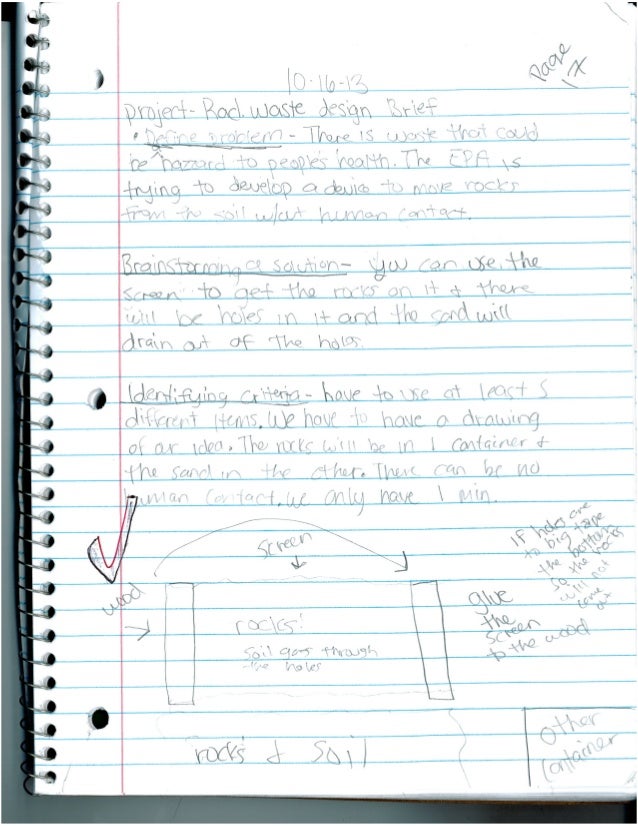 Page 17
10-16-13
project- Rad. waste design Brief
• Define problem - There is waste that could
be ^hazzard to people's health. The EPA is
trying to develop a device to move rocks
from the soil w/out human contact.
Brainstorming a solution- you can use the
screen to get the rocks on it & there
will be holes in it and the sand will
drain out of the holes.
Identifying criteria - have to use at least 5
different items. We have to have a drawing
of our idea. The rocks will be in 1 container &
the sand in the other. There can be no
human contact. we only have 1 min.
screen
If holes are
to big tape
the bottom
so the rocks
will not
come
out
wood
rocks!
soil goes through
the holes
glue
the
screen
to the wood
rocks & soil
other
container